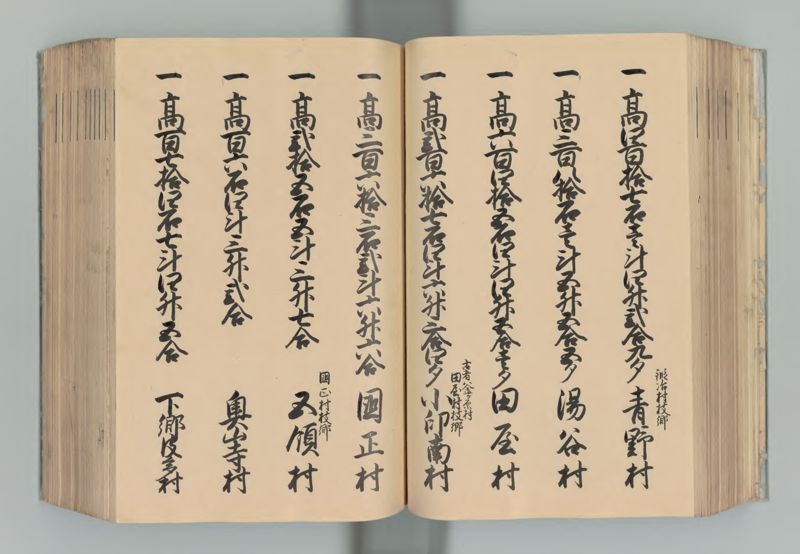 鍛冶村枝郷
一高四百拾七石壱斗四升弐合九夕 青野村
一高三百八拾石壱斗五升五合五夕 湯谷村
一高六百四拾五石四斗四升五合壱夕 田屋村
田屋村枝郷
一高弐百六拾七石四斗六升三合四夕 小印南村
一高三百六拾三石弐斗六升六合 國正村
國正村枝郷
一高弐拾五石五斗三升七合 五領村
一高百六石四斗三升弐合 奥山寺村
一高百七拾四石七斗四升五合 下郷後 村